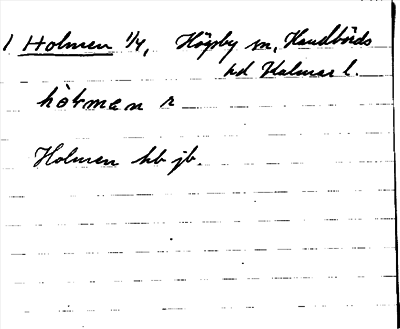 1 Holmen 1/4, Högsby sn, Handbörds
hd Kalmar l.
hòlmen n
Holmen hb jb.